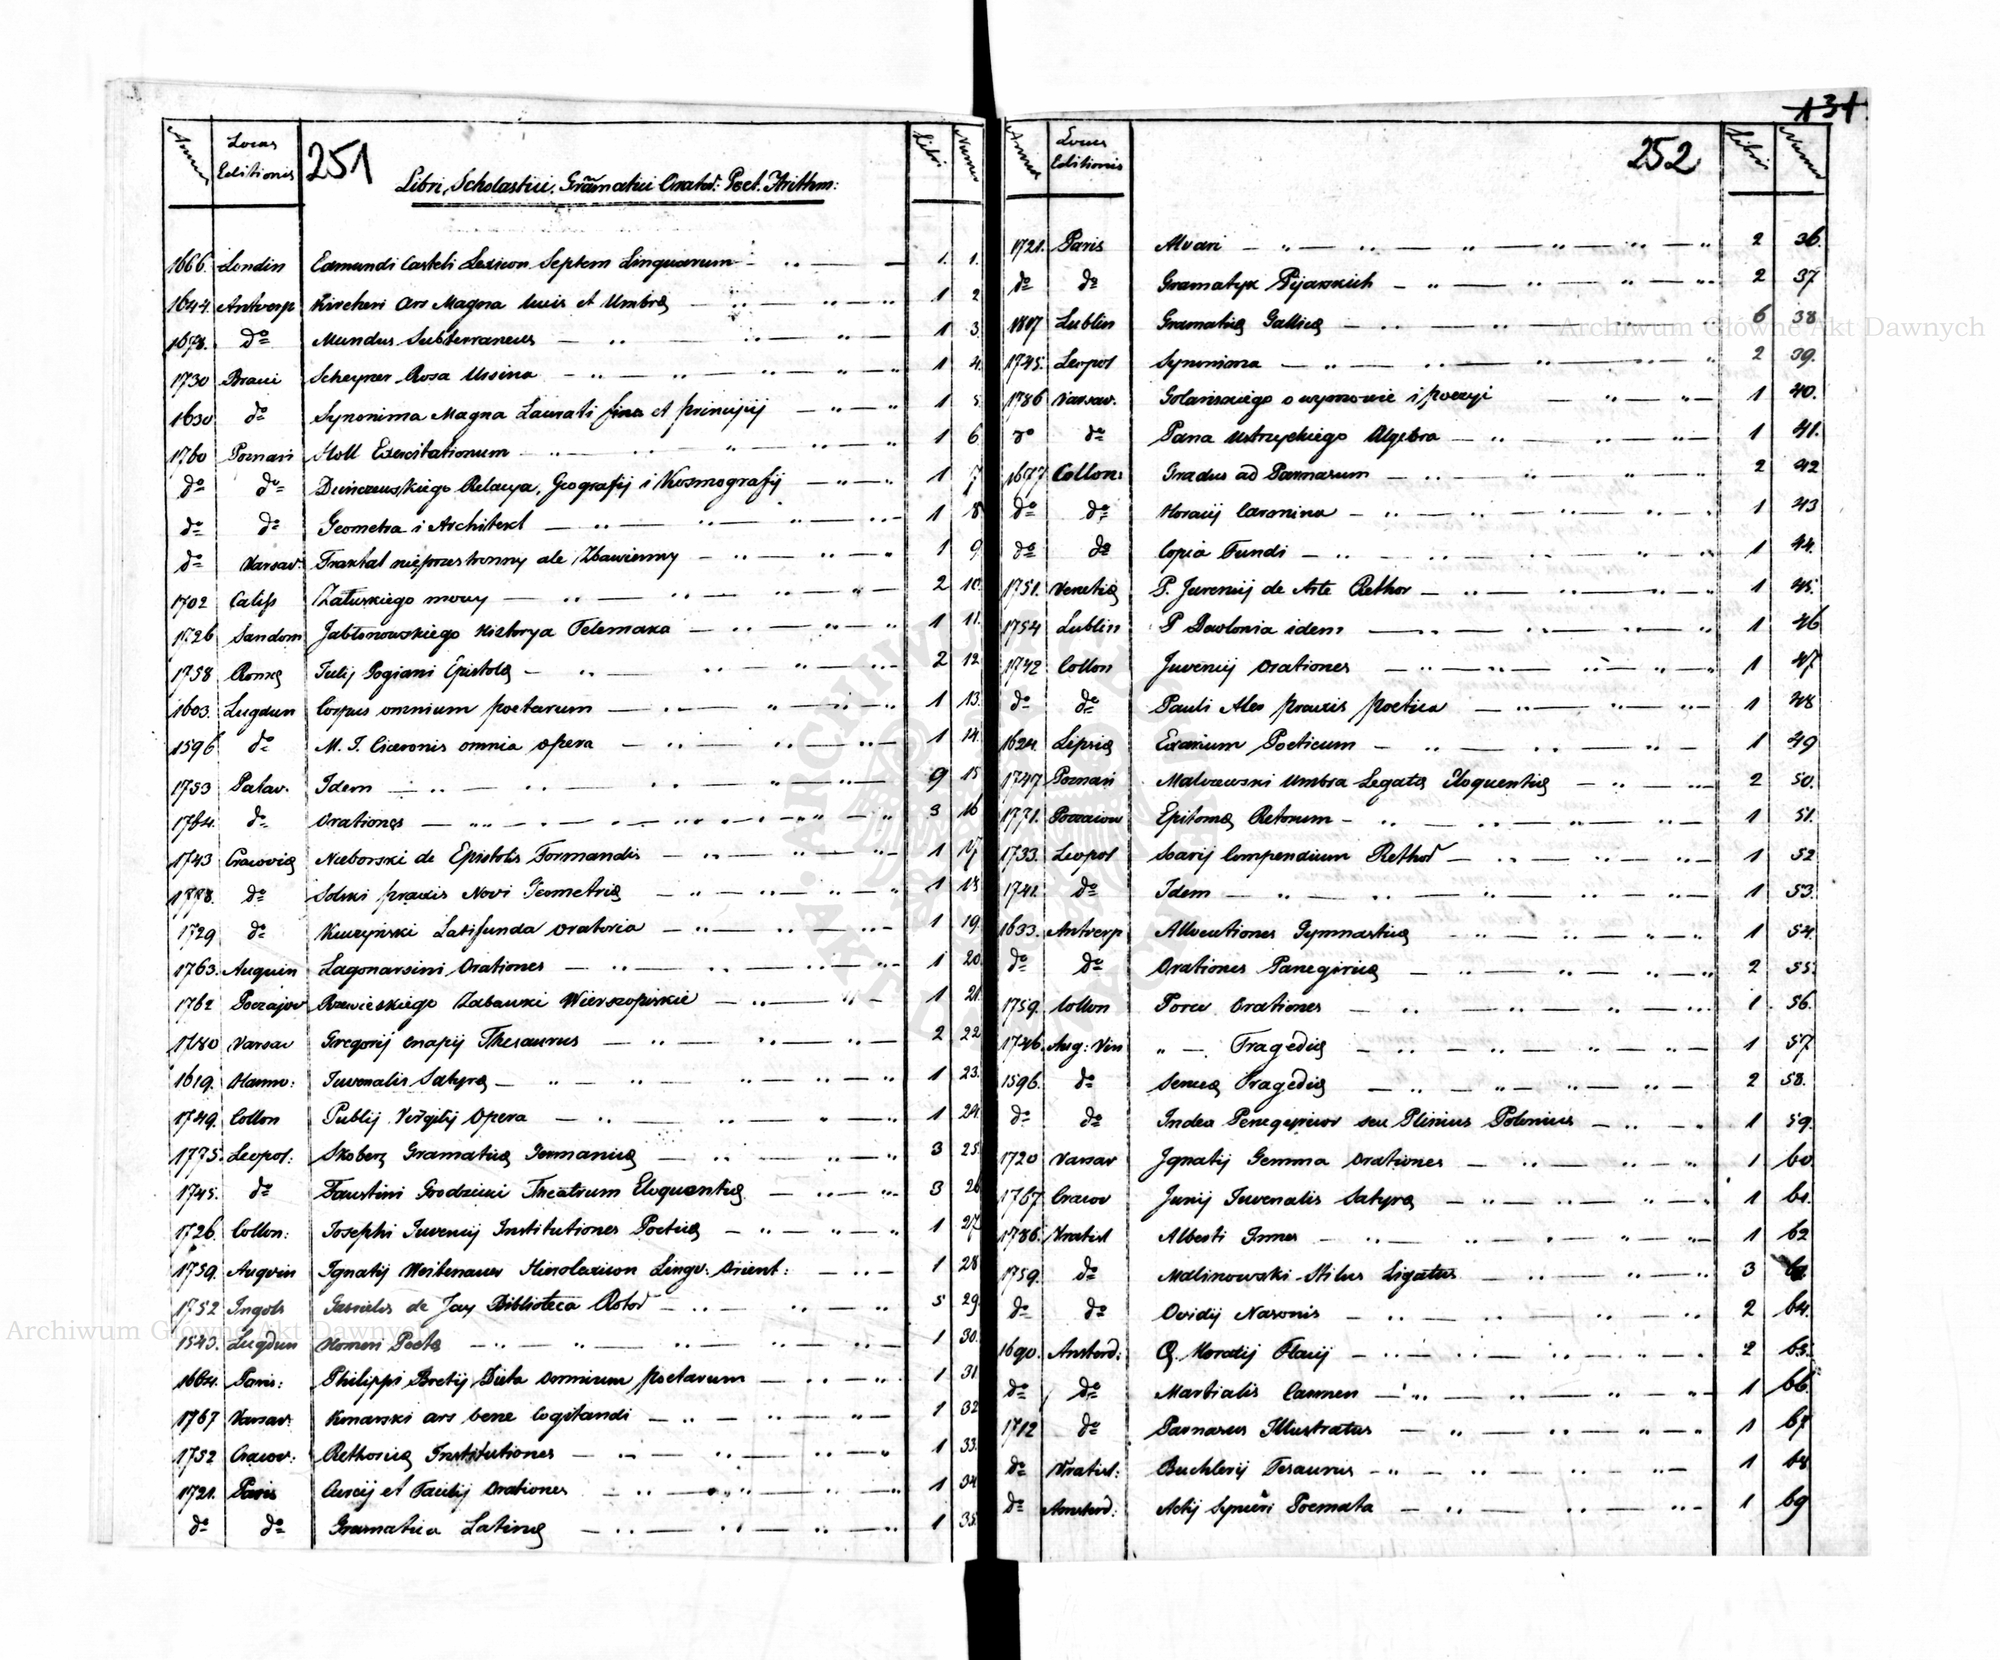 131.
Annus Locus Editionis 251 Libri Numer
Libri Scholastici, Gramatici Orator: Poet. Arithm:
1666. Londin Edmundi Casteli Lexicon Septem Linguarum 1. 1.
1644. Antverp Kircheri Ars Magna lucis et Umbrę 1 2
1678. do Mundus Subterraneus 1 3.
1730 Braci Scheyner Rosa Ursina 1 4.
1630 do Synonima Magna Laurati fina et principij 1 5
1760 Poznań Holl Exercitationum 1 6
do do Duńczewskiego Relacya, Geografij i Kosmografij 1 7
do do Geometra i Architekt 1 8
do Varsav: Traktat nieprzestronny ale Zbawienny 1 9
1702 Caliss Załuskiego mowy 2 10
1726 Sandom Jabłonowskiego Historya Telemaka 1 11.
1758 Romę Julij Pogiani Epistolę 2 12
1603. Lugdun Corpus omnium poetarum 1 13.
1596 do M. T. Ciceronis omnia opera 1 14.
1753 Patav. Idem 9 15
1764 do Orationes 3 16
1743 Cracovię Nieborski de Epistolis Formandis 1 17
1778. do Solski praxis Novi Geometrię 1 18
1729 do Kuczyński Latifunda Oratoria 1 19.
1763. Auguin Lagomarsini Orationes 1 20.
1762 Poczajow Rzewieskiego Zabawki Wierszopiskie 1 21.
1780 Varsav Gregorij Cnapij Thesaurus 2 22
1619. Hanno: Juvenalis Satyrę 1 23.
1749. Collon Publij Virgilij Opera 1 24.
1775. Leopol: Skoberz Gramaticę Germanicę 3 25
1745. do Faustini Grodzicki Theatrum Eloquentię 3 26
1726. Collon: Josephi Juvencij Institutiones Poeticę 1 27
1759. Augvin Ignatij Weitenauer Hierolexicon Lingv: Orient: 1 28
1752 Ingols Gabrielis de Jay Biblioteca Retor 5 29.
1543. Lugdun Homeri Poetę 1 30.
1664. Paris: Philippi Bretij Dicta omnium poetarum 1 31
1767 Varsav: Konarski ars bene Cogitandi 1 32
1752 Cracov: Rethoricę Institutiones 1 33.
1721. Paris Curcij et Taciti Orationes 1 34
do do Gramatica Latinę 1 35.
Annus Locus Editionis 252 Libri Numer
1721. Paris Alvari 2 36.
do do Gramatyk Pijarskich 2 37
1817 Lublin Gramaticę Gallicę 6 38
1745. Leopol Synonima 2 39.
1786 Varsav. Golańskiego o wymowie i poezyi 1 40.
do do Pana Ustrzyckiego Algebra 1 41.
1677 Collon: Gradus ad Parnasum 2 42
do do Horacij Carmina 1 43
do do Copia Fundi 1 44.
1751. Venetię P. Juvencij de Arte Rethor 1 45.
1754 Lublin P Dawlonia idem 1 46
1742 Collon Juvencij Orationes 1 47
do do Pauli Aler praxis poetica 1 48
1624 Lipsię Exarium Poeticum 1 49
1747 Poznań Malczewski Umbra Legatę Eloquentię 2 50.
1771. Poczaiow Epitomę Retorum 1 51.
1733. Leopol Soarij Compendium Rethor 1 52
1741. do Idem 1 53.
1633. Antverp Allocutiones Gymnasticę 1 54.
do do Orationes Panegiricę 2 55.
1759. Collon Poree Orationes 1 56.
1746. Aug: Vin „ Tragedię 1 57
1596. do Senecę Tragedię 2 58.
do do Index Penegyricor seu Plinius Polonius 1 59.
1720 Varsav Ignatij Gemma Orationes 1 60
1767 Cracov Junij Juvenalis Satyrę 1 61.
1786. Vratisl Alberti Innes 1 62
1759. do Malinowski Stilus Ligatus 3
do do Ovidij Nasonis 2 64.
1690. Amsterd: Q. Horatij Flacij 2 65.
do do Martialis Carmen 1 66.
1712 do Parnasus Illustratus 1 67
do Vratisl: Buchlerij Tesaurus 1 68
do Amsterd: Actij Synceri Poemata 1 69
Archiwum Główne Akt Dawnych
Archiwum Główne Akt Dawnych